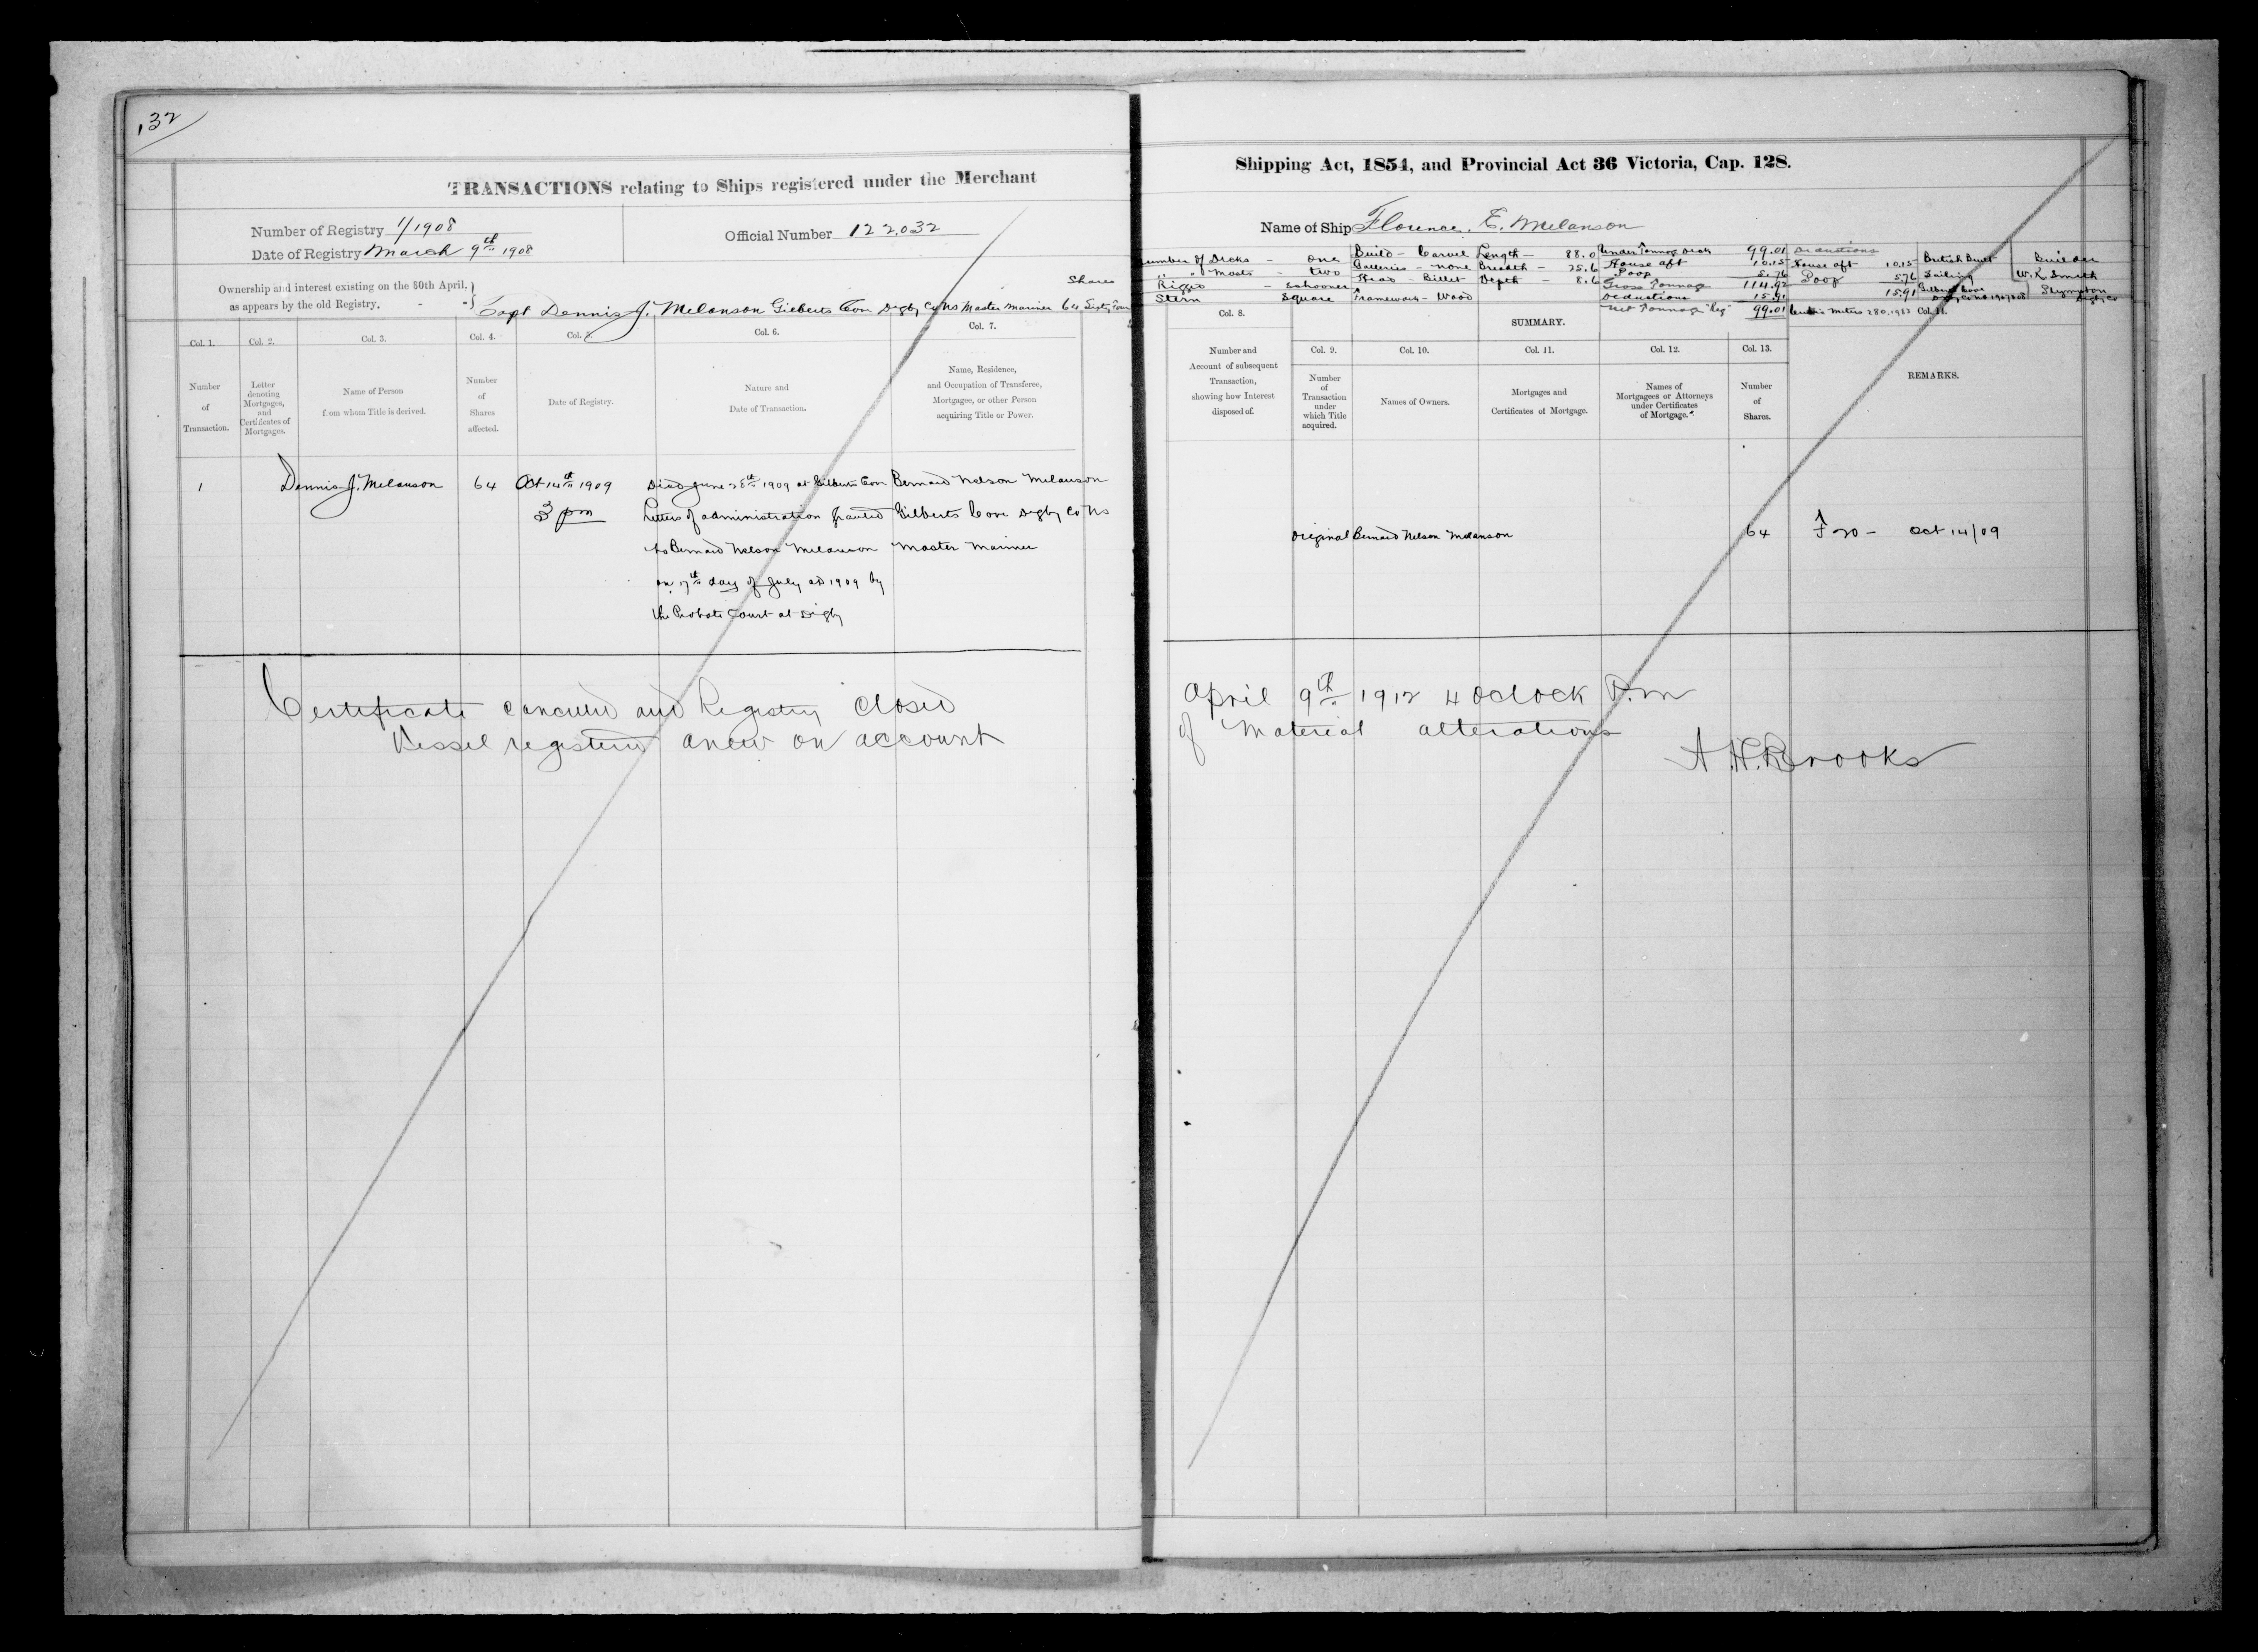 132
TRANSACTIONS relating to Ships registered under the Merchant
Number of Registry 1/1908
Date of Registry March 9th 1908
Official Number 122,032
Ownership and interest existing on the 30th April,
as appears by the old Registry,
Shares
Capt Dennis J. Melanson Gilberts Cove Digby Co NS Master Mariner 64 Sixty Four
Col. 1.
Col. 2.
Col. 3.
Col. 4.
Col. 5.
Col. 6.
Col. 7.
Number of Transaction.
Letter denoting Mortgages, and Certificates of Mortgages.
Name of Person from whom Title is derived.
Number of Shares affected.
Date of Registry.
Nature and Date of Transaction.
Name, Residence, and Occupation of Transferee, Mortgagee, or other Person acquiring Title or Power.
1 Dennis J. Melanson 64 Oct 14th 1909 Died June 28th 1909 at Gilberts Cove Bernard Nelson Melanson
3 pm Letters of administration granted Gilberts Cove Digby Co NS
to Bernard Nelson Melanson Master Mariner
on 17th day of July AD 1909 by
the Probate Court at Digby
Certificate canceled and Registry closed
Vessel registered anew on account
Shipping Act, 1854, and Provincial Act 36 Victoria, Cap. 128.
Name of Ship Florence. E. Melanson
Number of Decks - one
" " Masts - two
Rigged - schooner
Stern Square
Build - Carvel
Galleries - none
Head - Billet
Framework - Wood
Length - 88.0
Breadth - 25.6
Depth - 8.6
Under Tonnage Deck 99.01
House aft 10.15
Poop 5.76
Gross Tonnage 114.92
Deductions 15.91
Net Tonnage Reg 99.01
Deductions
House aft 10.15
Poop 5.76
15.91
Cubic Meters 280.1983
British Built
Sailing
Gilberts Cove
Builder
W. K. Smith
Plympton
Digby Co
Col. 8.
SUMMARY.
Col. 14.
Number and Account of subsequent Transaction, showing how Interest disposed of.
Col. 9.
Col. 10.
Col. 11.
Col. 12.
Col. 13.
Number of Transaction under which Title acquired.
Names of Owners.
Mortgages and Certificates of Mortgage.
Names of Mortgagees or Attorneys under Certificates of Mortgage.
Number of Shares.
REMARKS.
original Bernard Nelson Melanson 64 F 20 - Oct 14/09
April 9th 1912 4 oclock P.m
of Material alterations
A. H. Brooks